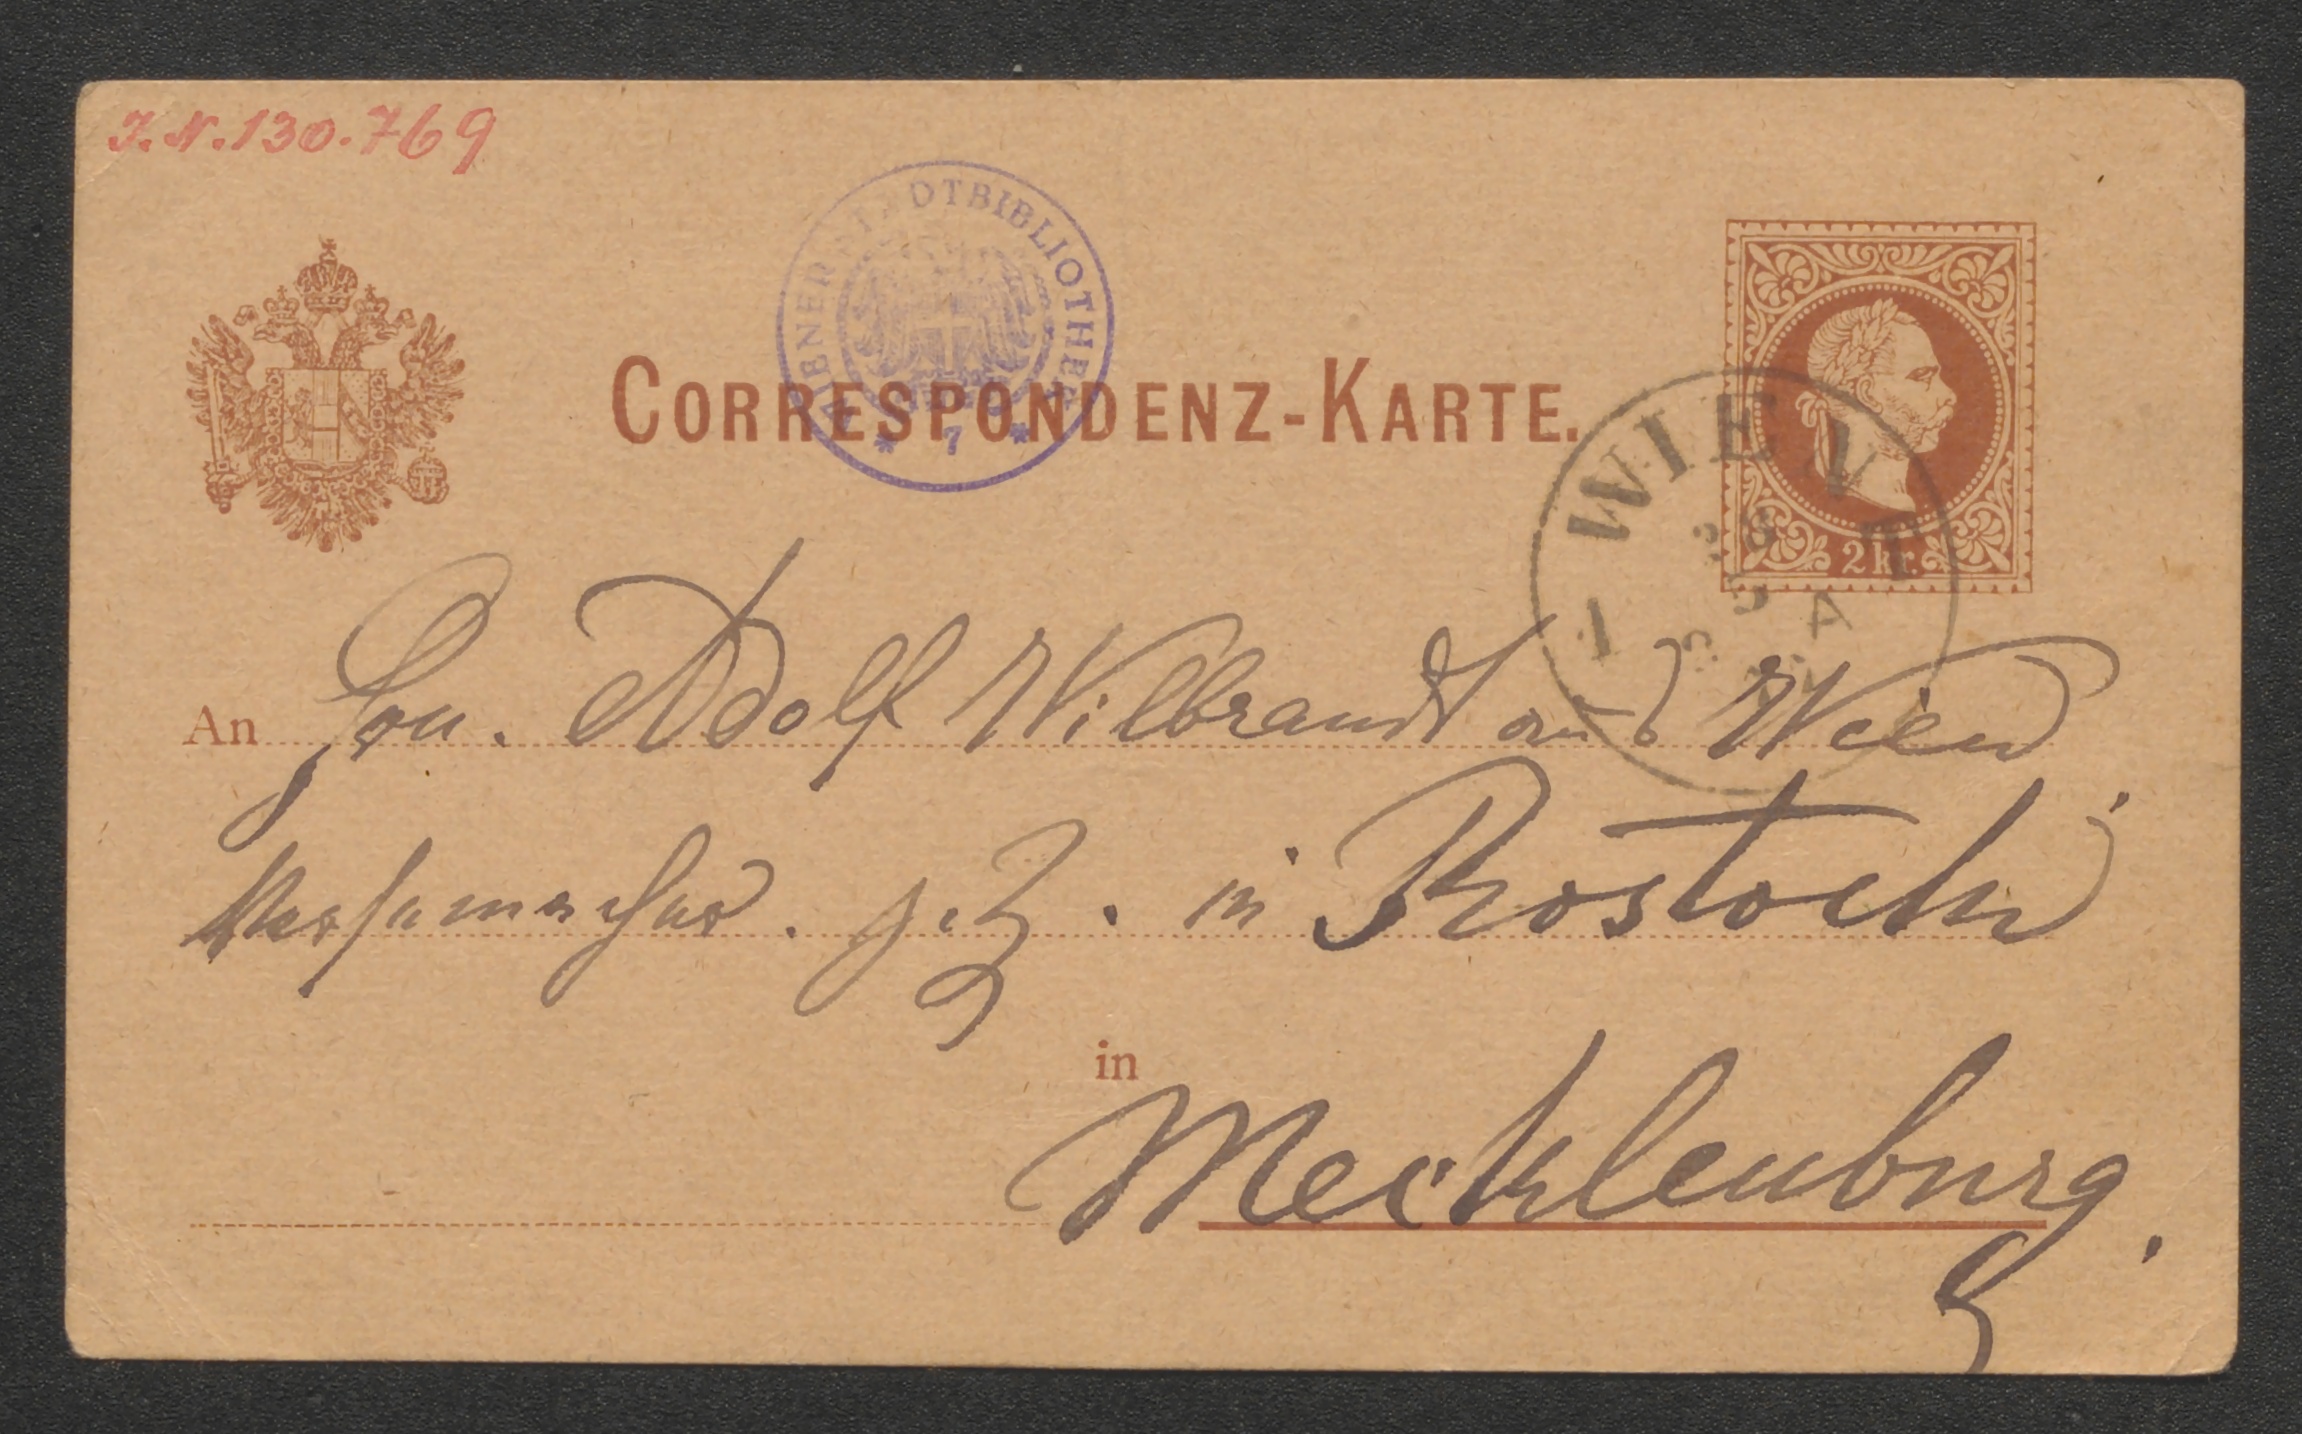 J.N.130.769
WIENER STADTBIBLIOTHEK
* 7 *
CORRESPONDENZ-KARTE.
2 kr.
WIEN
1
An Hrn. Adolf Wilbrandt aus Wien
Versemacher. z.Z. in Rostock
in
Mecklenburg.